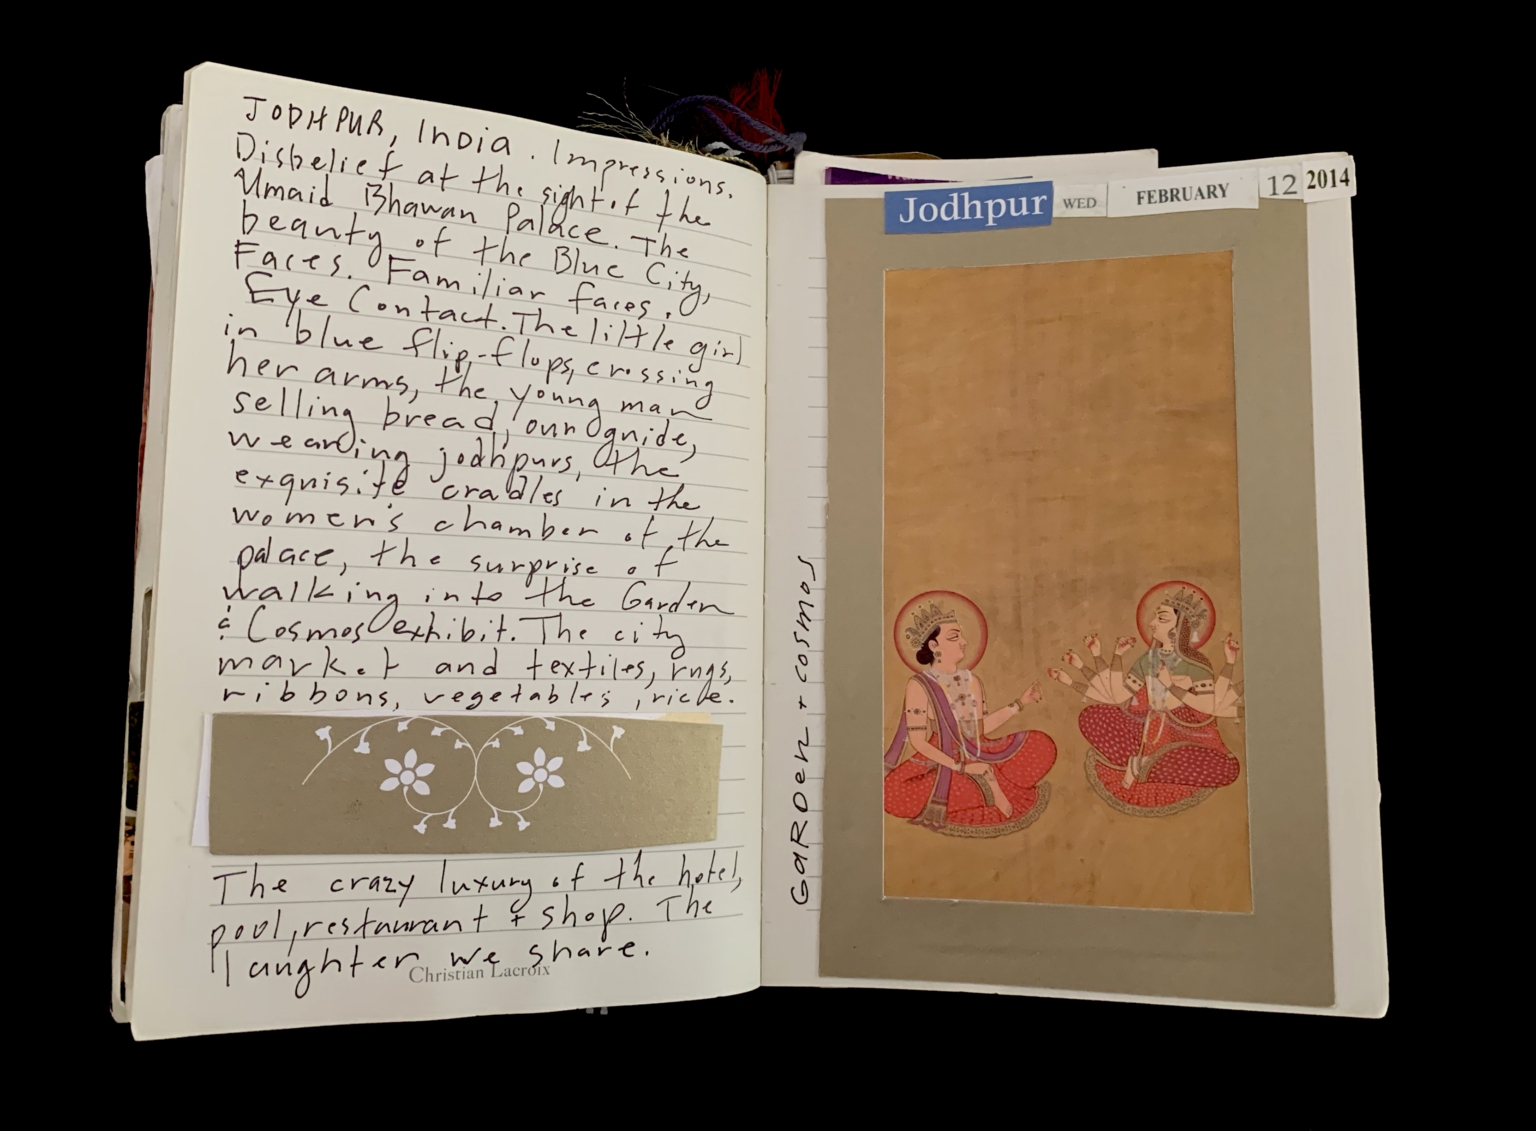 JODHPUR, India. Impressions.
Disbelief at the sight of the
Umaid Bhawan Palace. The
beauty of the Blue City,
Faces. Familiar faces.
Eye Contact. The little girl
in blue flip-flops, crossing
her arms, the young man
selling bread, our guide,
wearing jodhpurs, the
exquisite cradles in the
women's chamber of the
palace, the surprise of
walking into the Garden
& Cosmos exhibit. The city
market and textiles, rugs,
ribbons, vegetables, rice.
The crazy luxury of the hotel,
pool, restaurant + shop. The
laughter we share.
Christian Lacroix
Jodhpur WED FEBRUARY 12 2014
GARDEN + COSMOS